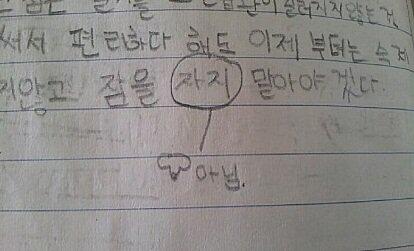 습관이 싫어지지않는것
써서 편리하다 해도 이제 부터는 숙제
지않고 잠을 자지 말아야 겠다
아님.